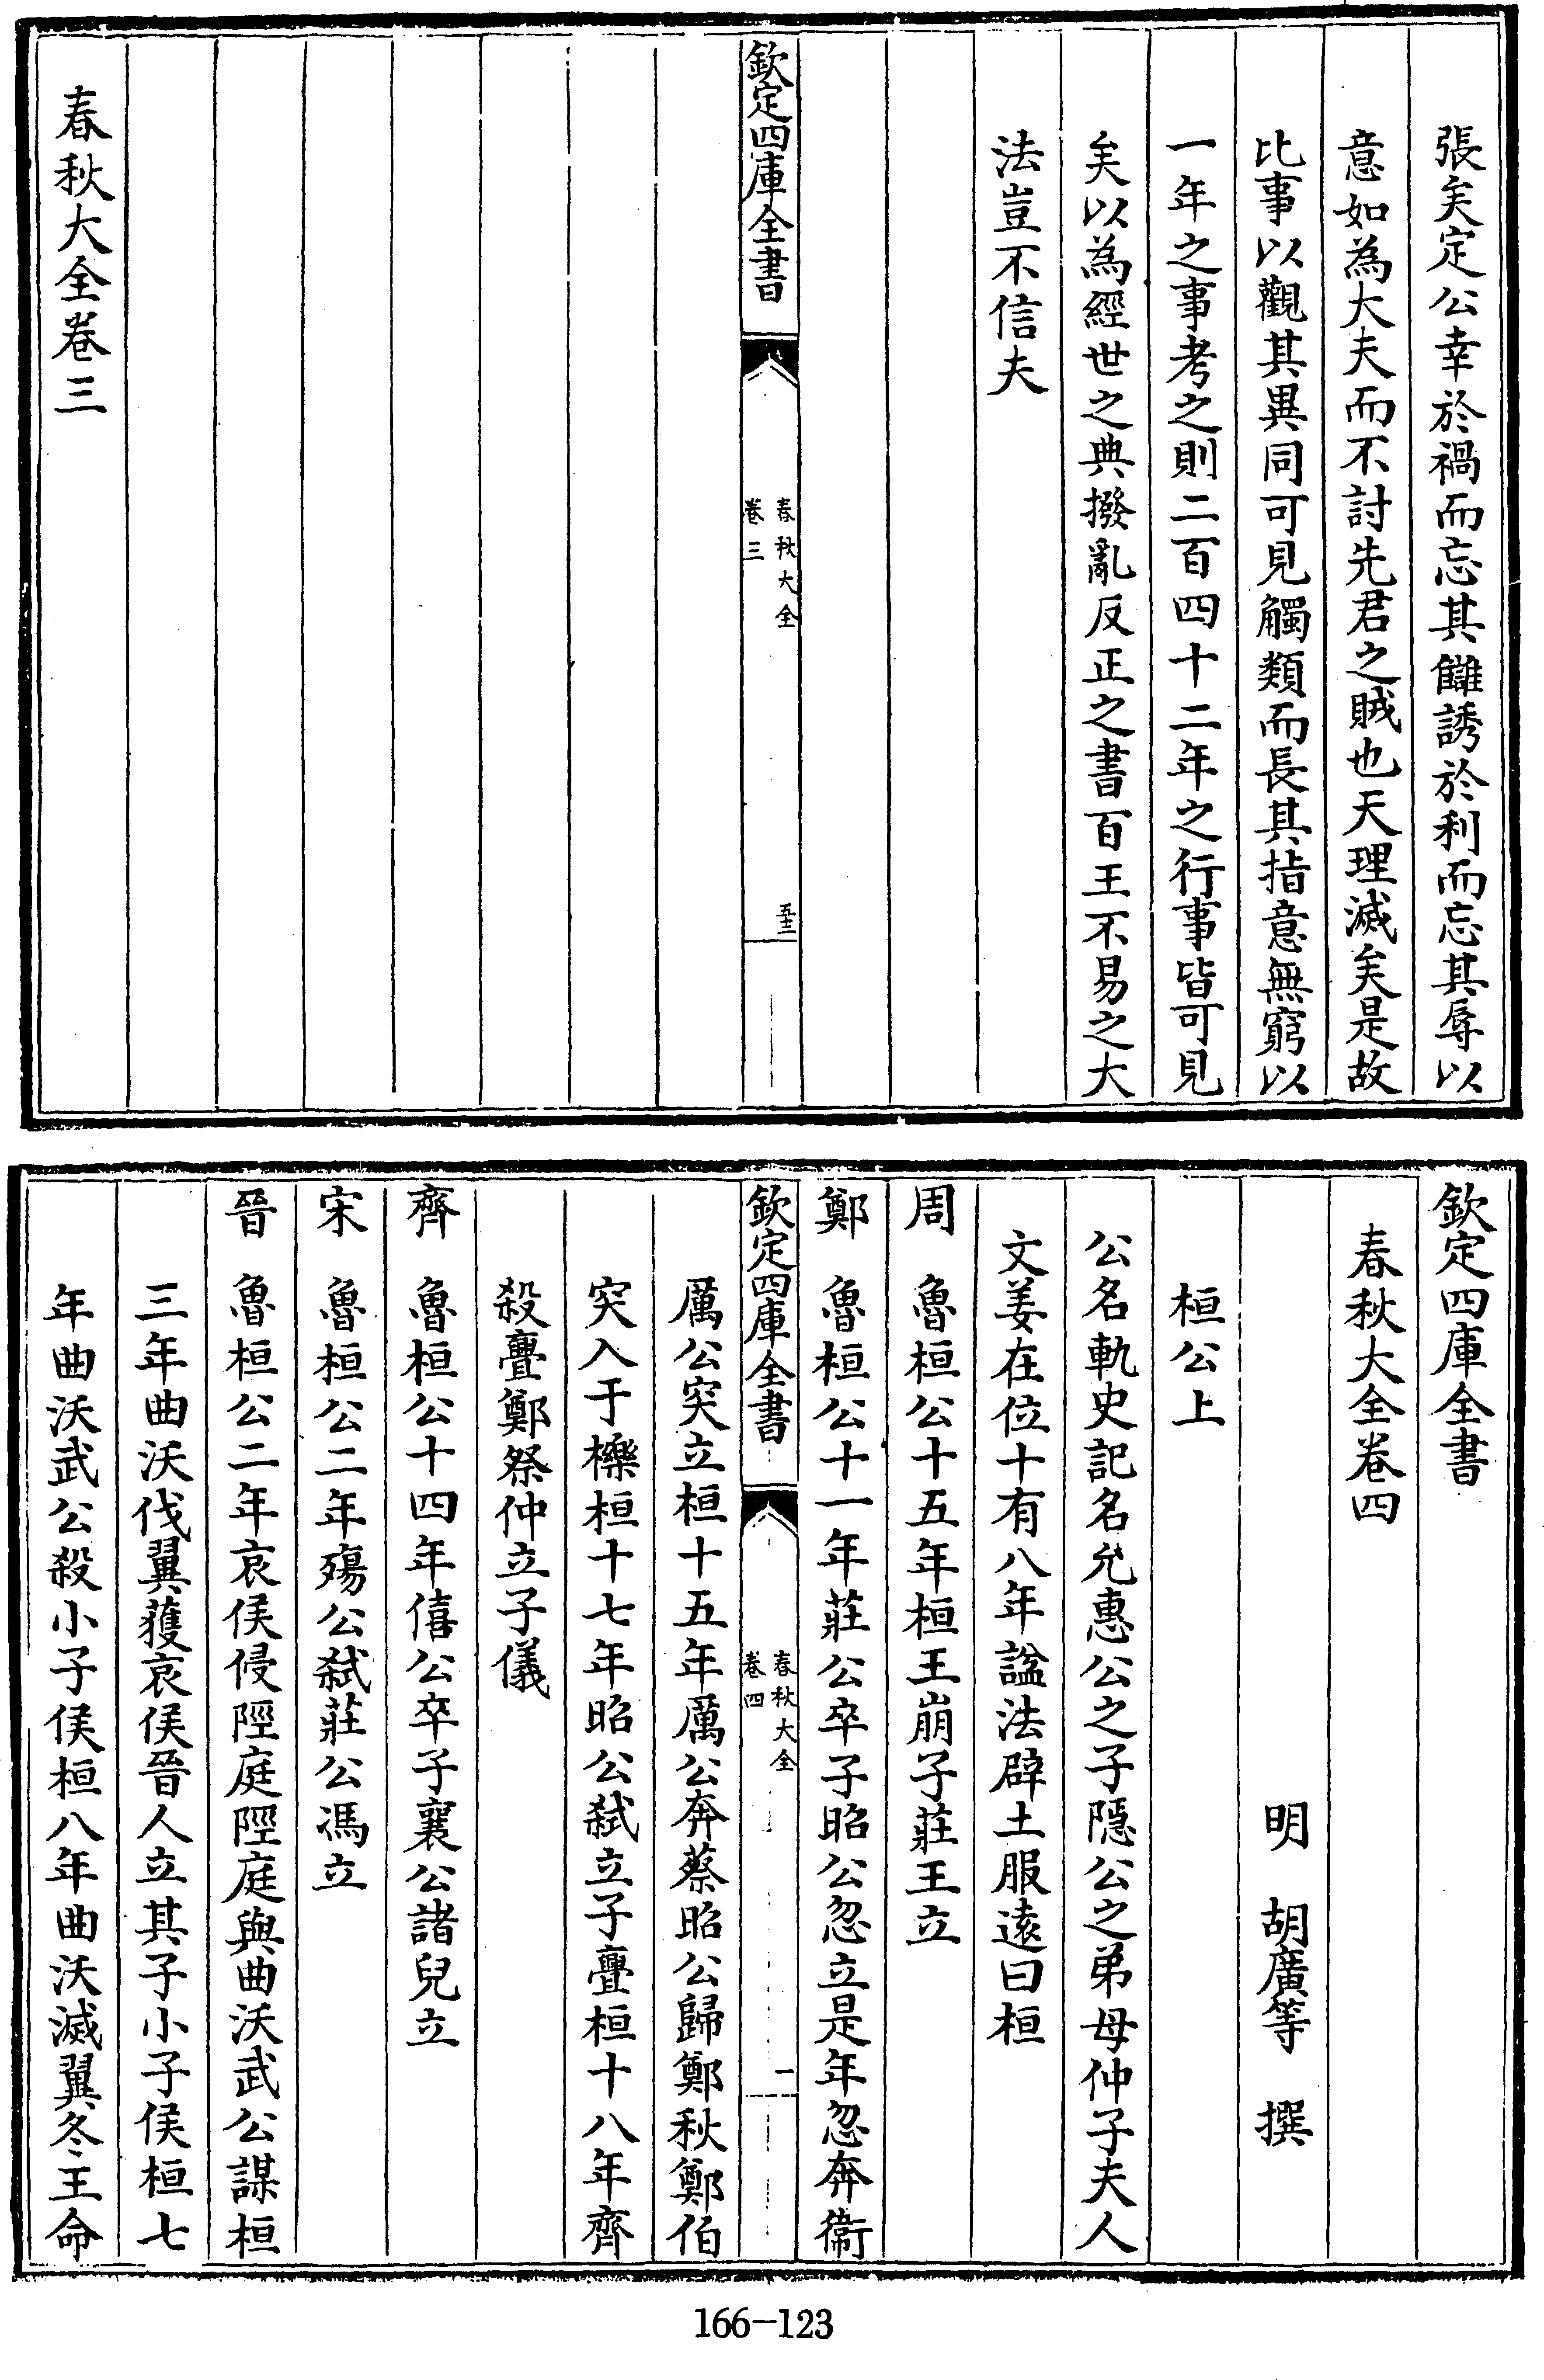 張矣定公幸於禍而忘其讎誘於利而忘其辱以
意如為大夫而不討先君之賊也天理滅矣是故
比事以觀其異同可見觸類而長其指意無窮以
一年之事考之則二百四十二年之行事皆可見
矣以為經世之典撥亂反正之書百王不易之大
法豈不信夫
欽定四庫全書
春秋大全
卷三
五十三
春秋大全卷三
欽定四庫全書
春秋大全卷四
明　胡廣等　撰
桓公上
公名軌史記名允惠公之子隱公之弟母仲子夫人
文姜在位十有八年諡法辟土服遠曰桓
周　魯桓公十五年桓王崩子莊王立
鄭　魯桓公十一年莊公卒子昭公忽立是年忽奔衞
欽定四庫全書
春秋大全
卷四
一
厲公突立桓十五年厲公奔蔡昭公歸鄭秋鄭伯
突入于櫟桓十七年昭公弑立子亹桓十八年齊
殺亹鄭祭仲立子儀
齊　魯桓公十四年僖公卒子襄公諸兒立
宋　魯桓公二年殤公弑莊公馮立
晉　魯桓公二年哀侯侵陘庭陘庭與曲沃武公謀桓
三年曲沃伐翼獲哀侯晉人立其子小子侯桓七
年曲沃武公殺小子侯桓八年曲沃滅翼冬王命
166-123